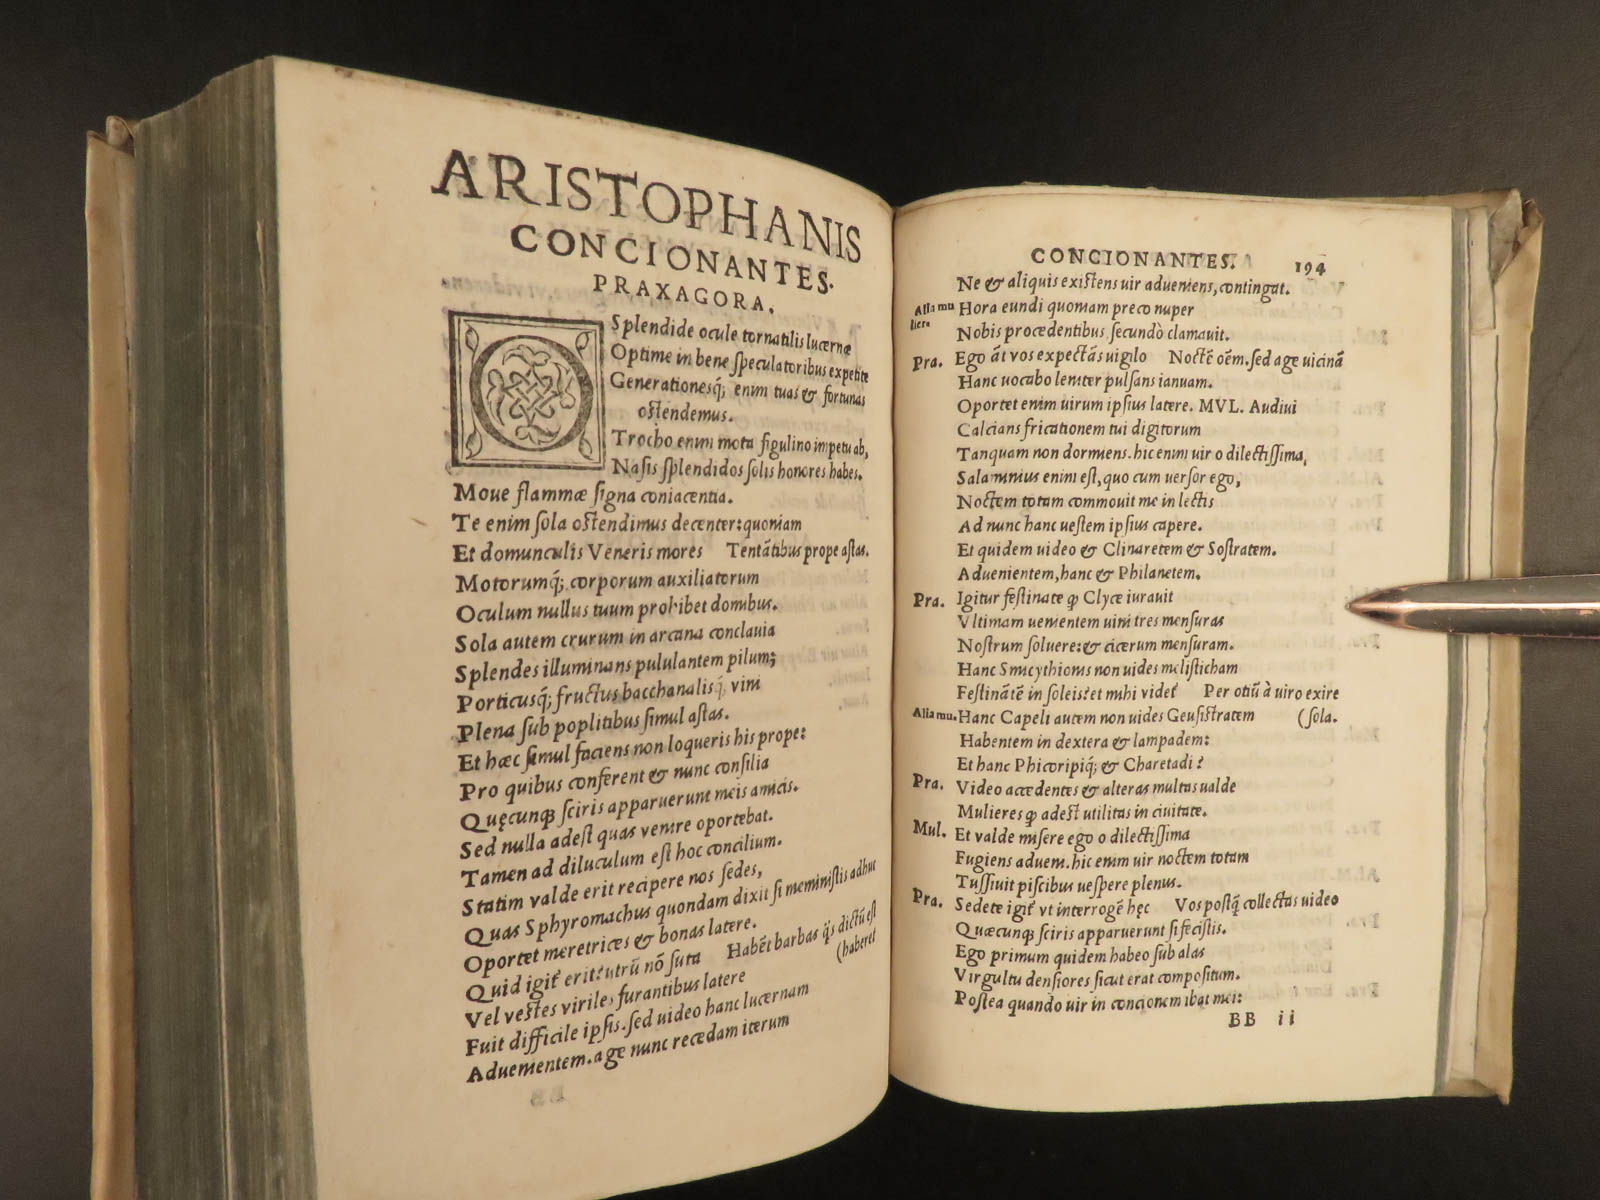 ARISTOPHANIS
CONCIONANTES.
PRAXAGORA.
O Splendide ocule tornatilis lucernæ
Optime in bene speculatoribus expetite
Generationesq; enim tuas & fortunas
ostendemus.
Trocho enim mota figulino impetu ab,
Nasis splendidos solis honores habes.
Moue flammæ signa coniacentia.
Te enim sola ostendimus decenter: quoniam
Et domunculis Veneris mores Tentātibus prope astas.
Motorumq; corporum auxiliatorum
Oculum nullus tuum prohibet domibus.
Sola autem crurum in arcana conclauia
Splendes illuminans pululantem pilum;
Porticusq; fructus bacchanalisq; vini
Plena sub poplitibus simul astas.
Et hæc simul faciens non loqueris his prope:
Pro quibus conferent & nunc consilia
Quęcunqꝫ sciris apparuerunt meis amicis.
Sed nulla adest quas venire oportebat.
Tamen ad diluculum est hoc concilium.
Statim valde erit recipere nos sedes,
Quas Sphyromachus quondam dixit si meministis adhuc
Oportet meretrices & bonas latere.
Quid igit erit? utrū nō suta Habēt barbas q̄s dictū est
Vel vestes viriles furantibus latere (haberet
Fuit difficile ipsis. sed uideo hanc lucernam
Aduenientem. age nunc recedam iterum
CONCIONANTES. 194
Ne & aliquis existens uir adueniens, contingat.
Alia mu Hora eundi quoniam preco nuper
liere Nobis procedentibus secundò clamauit.
Pra. Ego āt vos expectās uigilo Noctē oēm. sed age uicinā
Hanc uocabo leniter pulsans ianuam.
Oportet enim uirum ipsius latere. MVL. Audiui
Calcians fricationem tui digitorum
Tanquam non dormiens. hic enim uir o dilectissima,
Salaminius enim est, quo cum uersor ego,
Noctem totam commouit me in lectis
Ad nunc hanc uestem ipsius capere.
Et quidem uideo & Clinaretem & Sostratem.
Aduenientem, hanc & Philanetem.
Pra. Igitur festinate ꝙ Clyce iurauit
Vltimam uenientem uini tres mensuras
Nostrum soluere: & cicerum mensuram.
Hanc Smicythionis non uides melisticham
Festinātē in soleis? et mihi videt Per otiū à uiro exire
Alia mu. Hanc Capeli autem non uides Geusistratem (sola.
Habentem in dextera & lampadem:
Et hanc Phicoripiq; & Charetadi?
Pra. Video accedentes & alteras multas ualde
Mulieres ꝙ adest utilitas in ciuitate.
Mul. Et valde misere ego o dilectissima
Fugiens adueni. hic enim uir noctem totam
Tussiuit piscibus uespere plenus.
Pra. Sedete igit vt interrogē hęc Vos postq̄ collectas uideo
Quæcunqꝫ sciris apparuerunt si fecistis.
Ego primum quidem habeo sub alas
Virgultu densiores sicut erat compositum.
Postea quando uir in concionem ibat mei:
BB ii